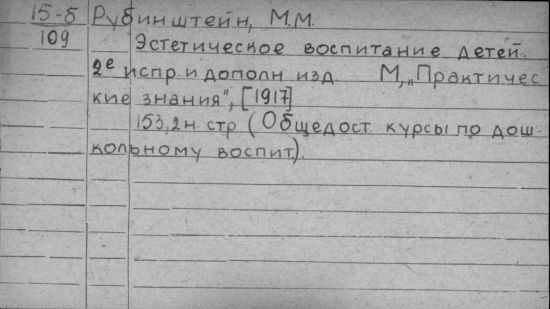 15-б Рубинштейн, М.М.
109
Эстетическое воспитание детей.
2е испр. и дополн изд. М, „Практичес-
кие знания", [1917]
153,2 н. стр (Общедост. курсы по дош-
кольному воспит.).